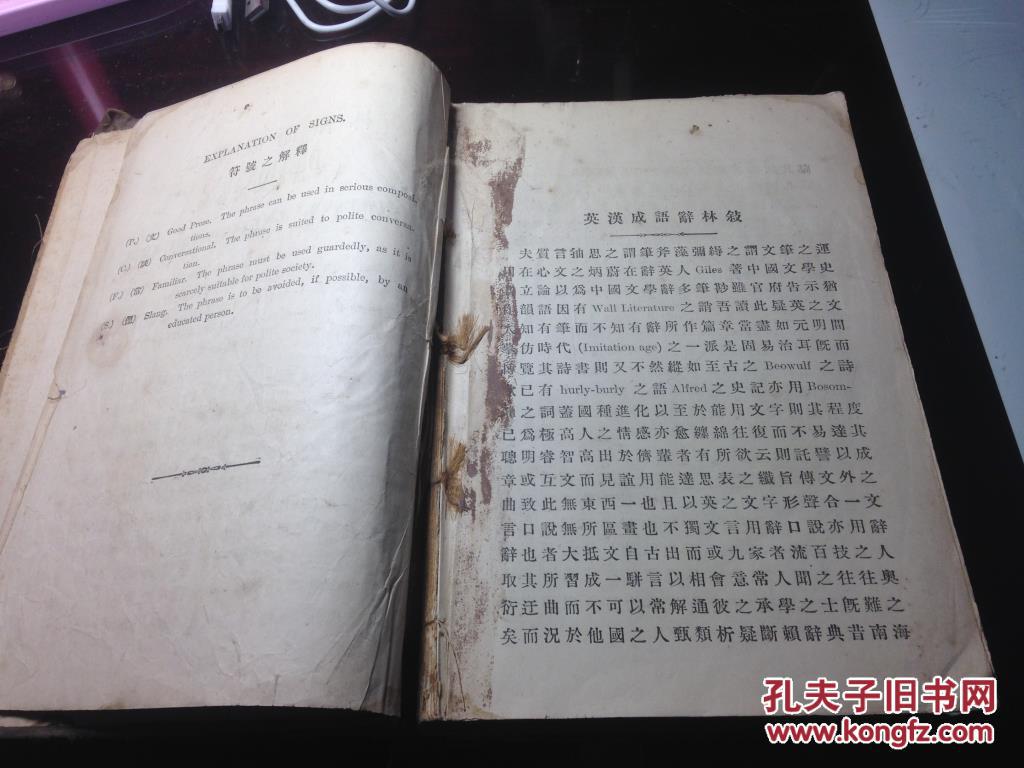 EXPLANATION OF SIGNS.
符號之解釋
(P.) (文) Good Prose. The phrase can be used in serious composi-
tions.
(C.) (談) Conversational. The phrase is suited to polite conversa-
tion.
(F.) (常) Familiar. The phrase must be used guardedly, as it is
scarcely suitable for polite society.
(S.) (俚) Slang. The phrase is to be avoided, if possible, by an
educated person.
英漢成語辭林敍
夫質言紬思之謂筆斧藻彌綘之謂文筆之運
在心文之炳蔚在辭英人 Giles 著中國文學史
立論以爲中國文學辭多筆尠雖官府告示猶
韻語因有 Wall Literature 之謂吾讀此疑英之文
知有筆而不知有辭所作篇章當盡如元明間
仿時代 (Imitation age) 之一派是固易治耳旣而
博覽其詩書則又不然縱如至古之 Beowulf 之詩
已有 hurly-burly 之語 Alfred 之史記亦用 Bosom-
之詞蓋國種進化以至於能用文字則其程度
已爲極高人之情感亦愈纏綿往復而不易達其
聰明睿智高出於儕輩者有所欲云則託譬以成
章或互文而見誼用能達思表之纖旨傳文外之
曲致此無東西一也且以英之文字形聲合一文
言口說無所區畫也不獨文言用辭口說亦用辭
辭也者大抵文自古出而或九家者流百技之人
取其所習成一駢言以相會意常人聞之往往奧
衍迂曲而不可以常解通彼之承學之士旣難之
矣而況於他國之人甄類析疑斷賴辭典昔南海
孔夫子旧书网
www.kongfz.com